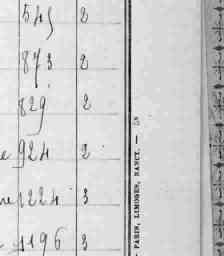 545 2
873 2
829 2
e 924 2
ne 1224 3
e 1196 3
PARIS, LIMOGES, NANCY. —